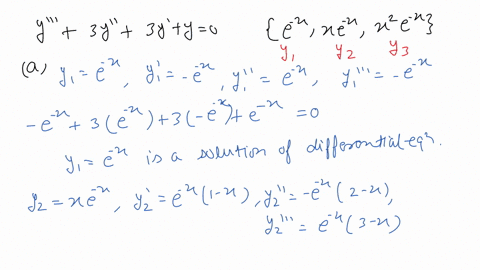 y''' + 3y'' + 3y' + y = 0 {e^{-x}, xe^{-x}, x²e^{-x}}
y₁ y₂ y₃
(a) y₁ = e^{-x}, y₁' = -e^{-x}, y₁'' = e^{-x}, y₁''' = -e^{-x}
-e^{-x} + 3(e^{-x}) + 3(-e^{-x}) + e^{-x} = 0
y₁ = e^{-x} is a solution of differential eqn.
y₂ = xe^{-x}, y₂' = e^{-x}(1-x), y₂'' = -e^{-x}(2-x),
y₂''' = e^{-x}(3-x)